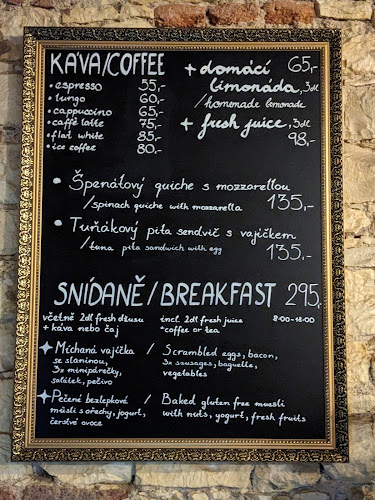 KÁVA/COFFEE
• espresso 55,-
• lungo 60,-
• cappuccino 65,-
• caffè latte 75,-
• flat white 85,-
• ice coffee 80,-
+ domácí 65,-
limonáda, 3dl
/homemade lemonade
+ fresh juice, 3dl
98,-
• Špenátový quiche s mozzarellou
/spinach quiche with mozzarella 135,-
• Tuňákový pita sendvič s vajíčkem
/tuna pita sandwich with egg 135,-
SNÍDANĚ/BREAKFAST 295,-
včetně 2dl fresh džusu incl. 2dl fresh juice 8:00-12:00
+ káva nebo čaj +coffee or tea
Míchaná vajíčka / Scrambled eggs, bacon,
se slaninou, 3x sausages, baguette,
3x minipárečky, vegetables
salátek, pečivo
Pečené bezlepkové / Baked gluten free muesli
müsli s ořechy, jogurt, with nuts, yogurt, fresh fruits
čerstvé ovoce